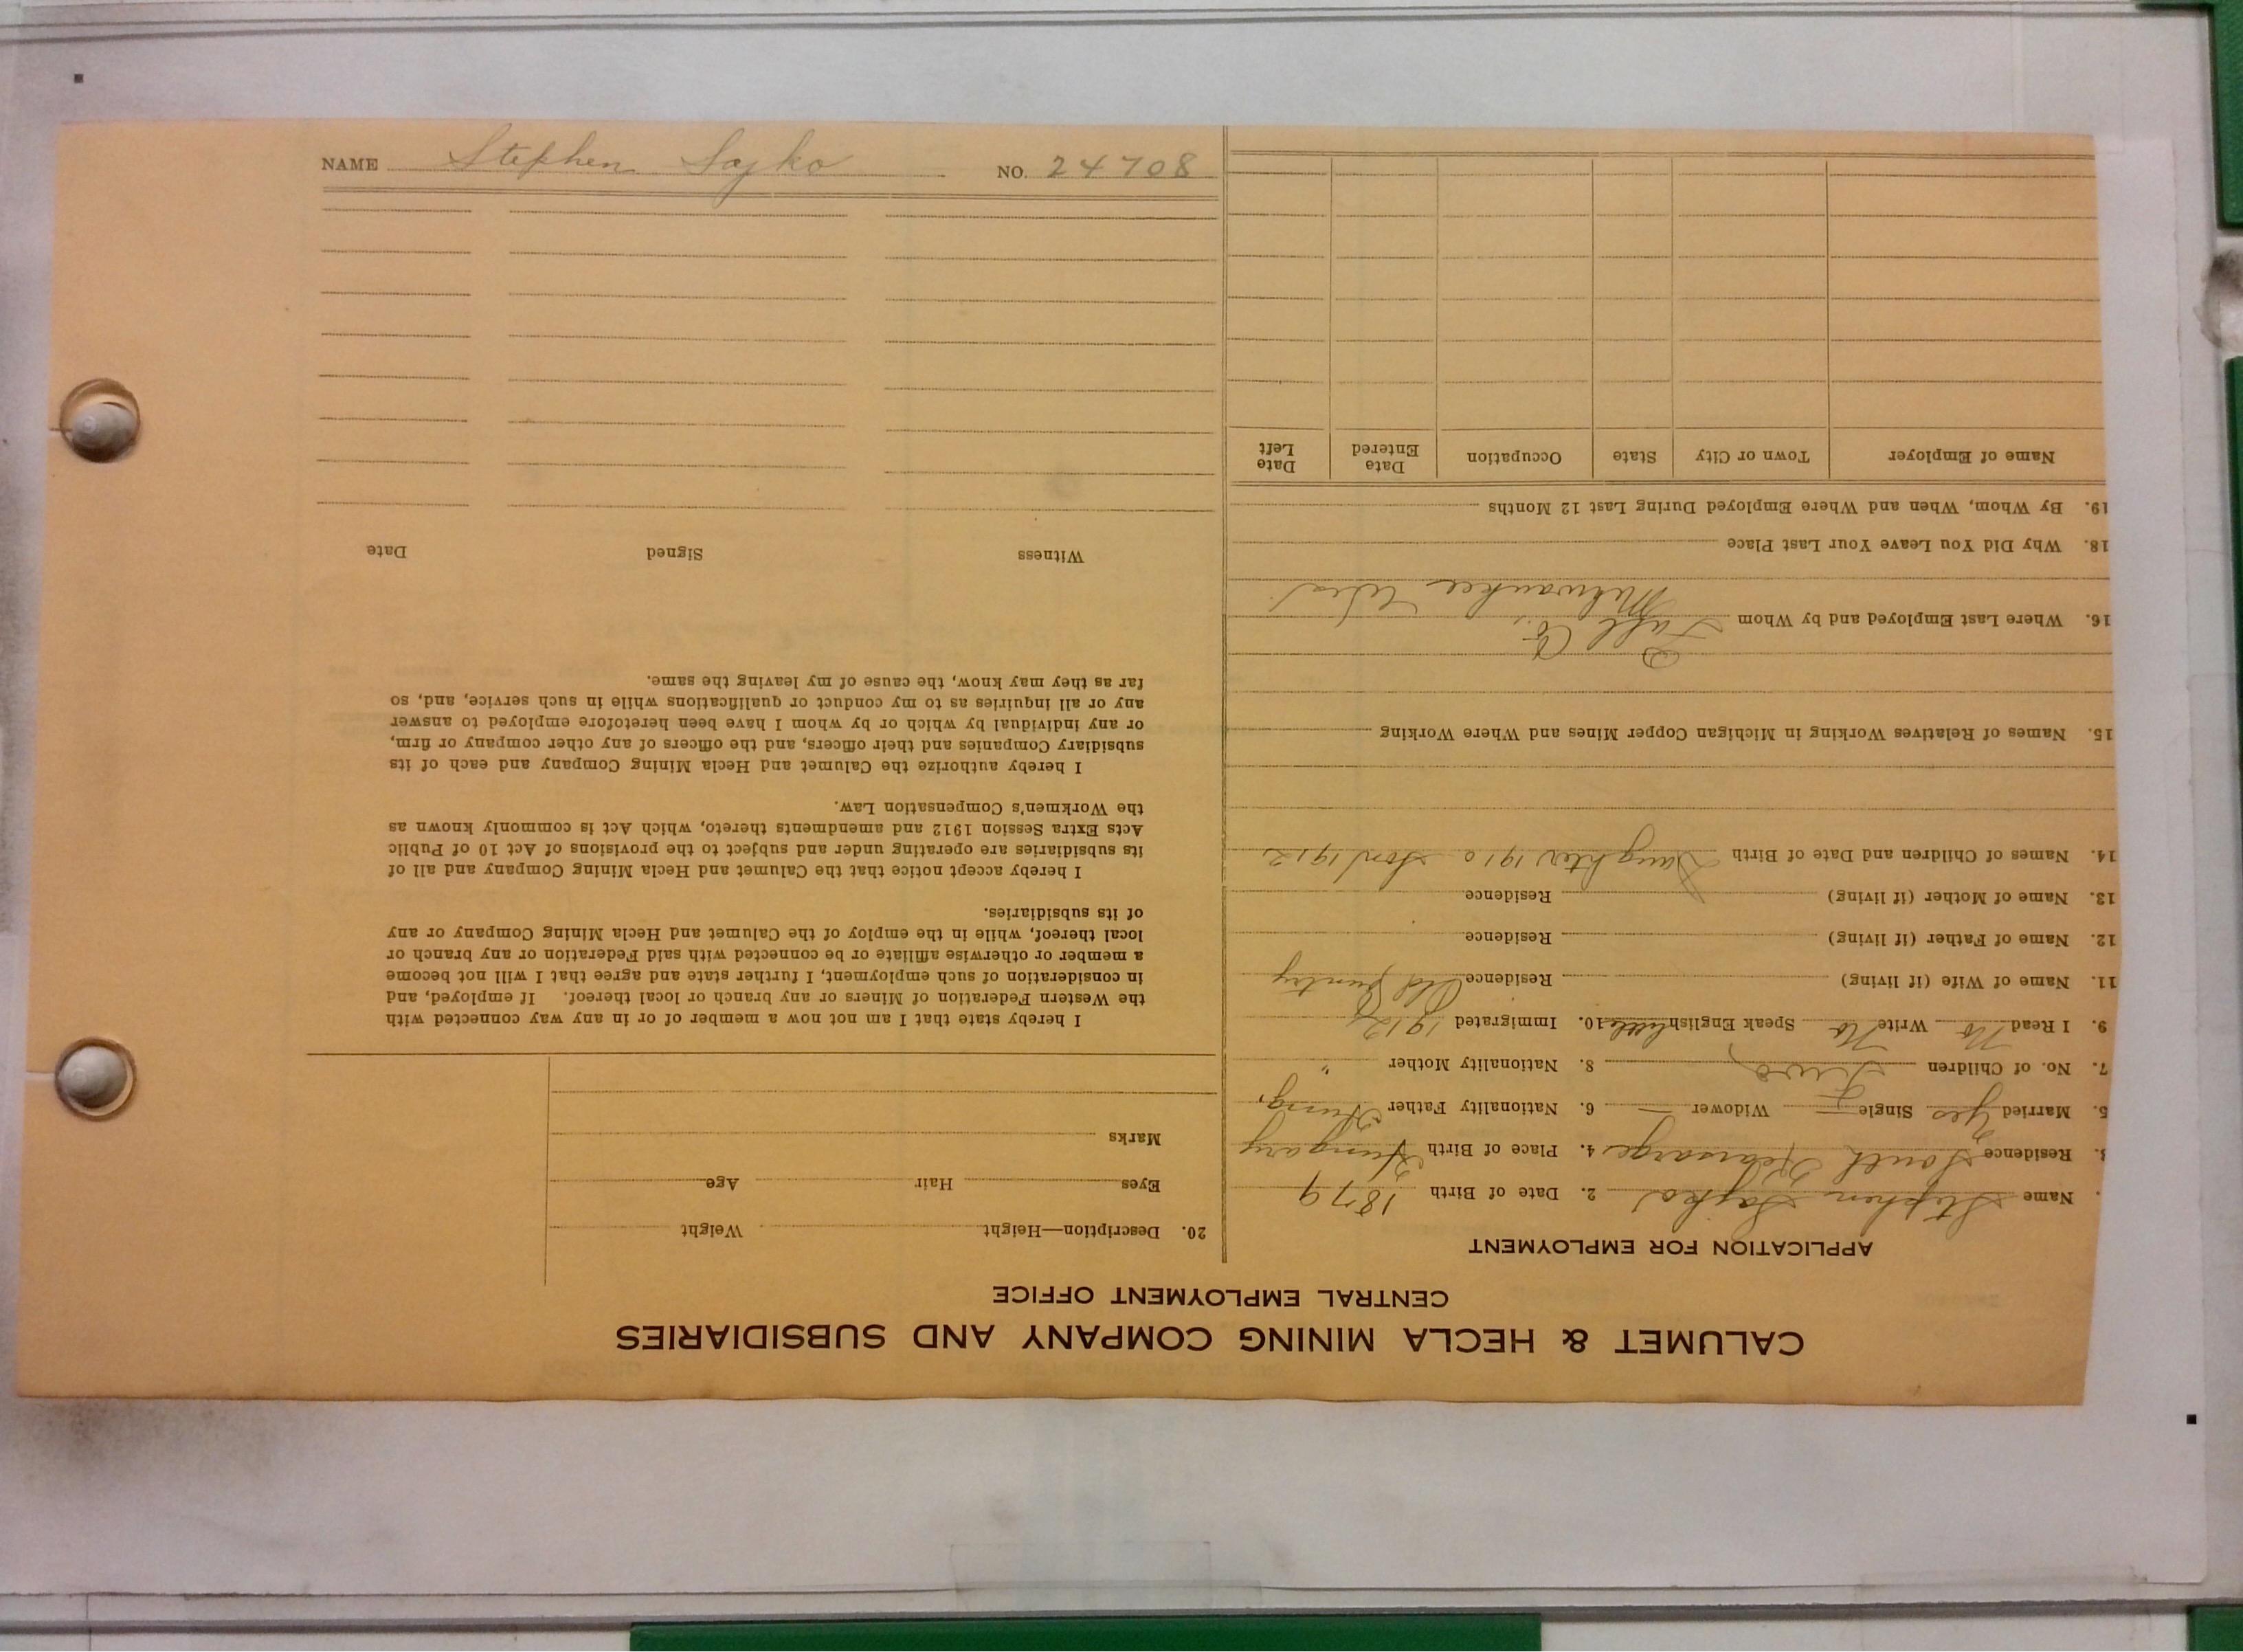 CALUMET & HECLA MINING COMPANY AND SUBSIDIARIES
CENTRAL EMPLOYMENT OFFICE
APPLICATION FOR EMPLOYMENT
. Name Stephen Sajko 2. Date of Birth 1879
3. Residence South Kearsarge 4. Place of Birth Hungary
5. Married Yes Single — Widower — 6. Nationality Father Hung.
7. No. of Children Two 8. Nationality Mother "
9. I Read No Write No Speak English little 10. Immigrated 1912
11. Name of Wife (if living) Residence Old Country
12. Name of Father (if living) Residence
13. Name of Mother (if living) Residence
14. Names of Children and Date of Birth Daughter 1910 Son 1912
15. Names of Relatives Working in Michigan Copper Mines and Where Working
16. Where Last Employed and by Whom Co.,
Milwaukee Wis
18. Why Did You Leave Your Last Place
19. By Whom, When and Where Employed During Last 12 Months
Name of Employer Town or City State Occupation Date Entered Date Left
20. Description—Height Weight
Eyes Hair Age
Marks
I hereby state that I am not now a member of or in any way connected with
the Western Federation of Miners or any branch or local thereof. If employed, and
in consideration of such employment, I further state and agree that I will not become
a member or otherwise affiliate or be connected with said Federation or any branch or
local thereof, while in the employ of the Calumet and Hecla Mining Company or any
of its subsidiaries.
I hereby accept notice that the Calumet and Hecla Mining Company and all of
its subsidiaries are operating under and subject to the provisions of Act 10 of Public
Acts Extra Session 1912 and amendments thereto, which Act is commonly known as
the Workmen's Compensation Law.
I hereby authorize the Calumet and Hecla Mining Company and each of its
subsidiary Companies and their officers, and the officers of any other company or firm,
or any individual by which or by whom I have been heretofore employed to answer
any or all inquiries as to my conduct or qualifications while in such service, and, so
far as they may know, the cause of my leaving the same.
Witness Signed Date
NAME Stephen Sajko NO. 24708